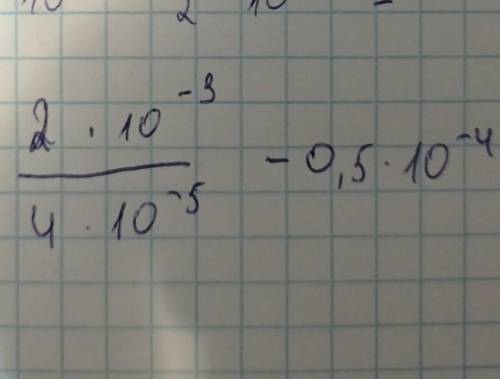 2 · 10⁻³
4 · 10⁻⁵
- 0,5 · 10⁻⁴